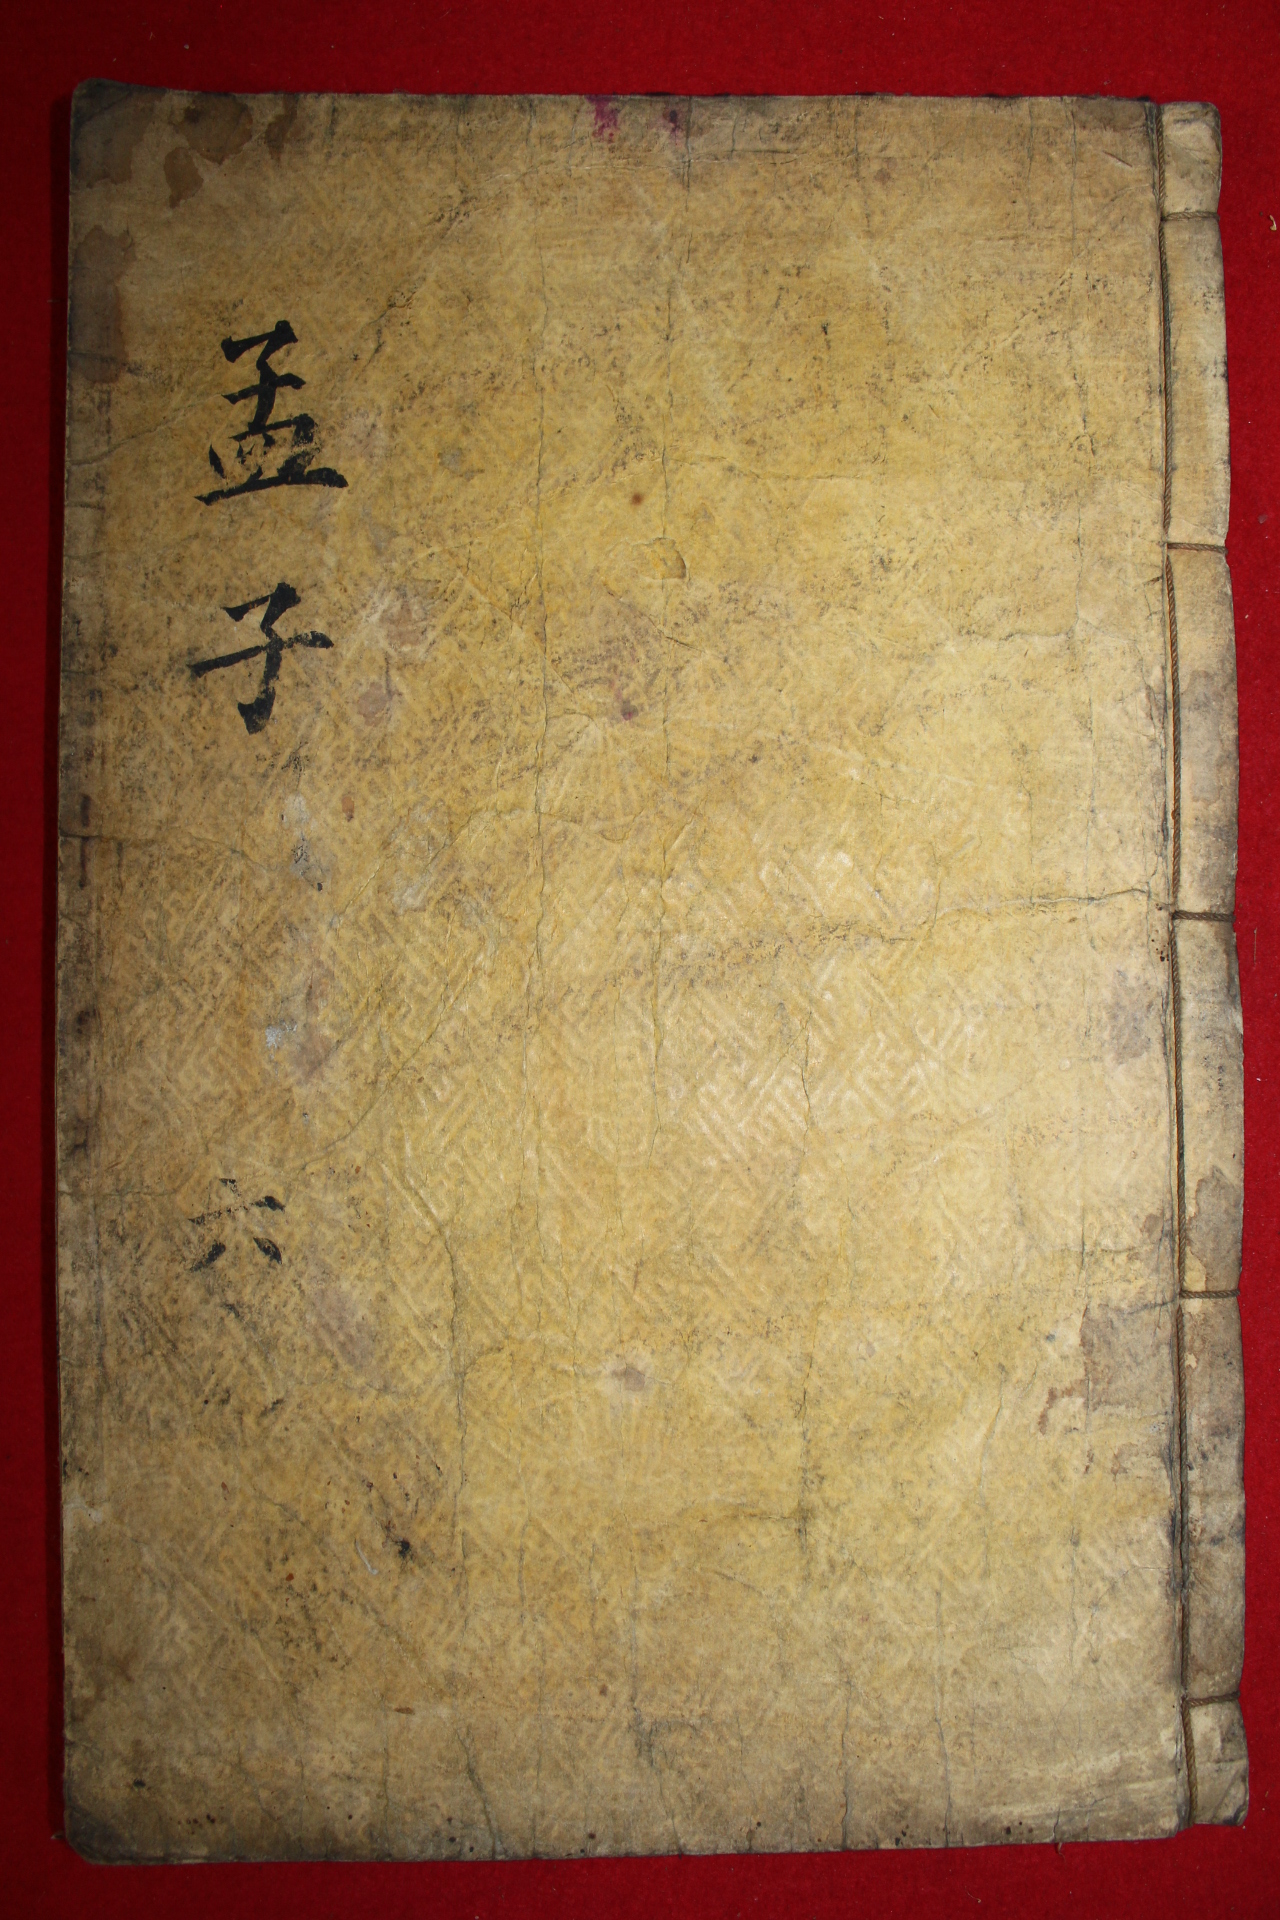 孟子 六